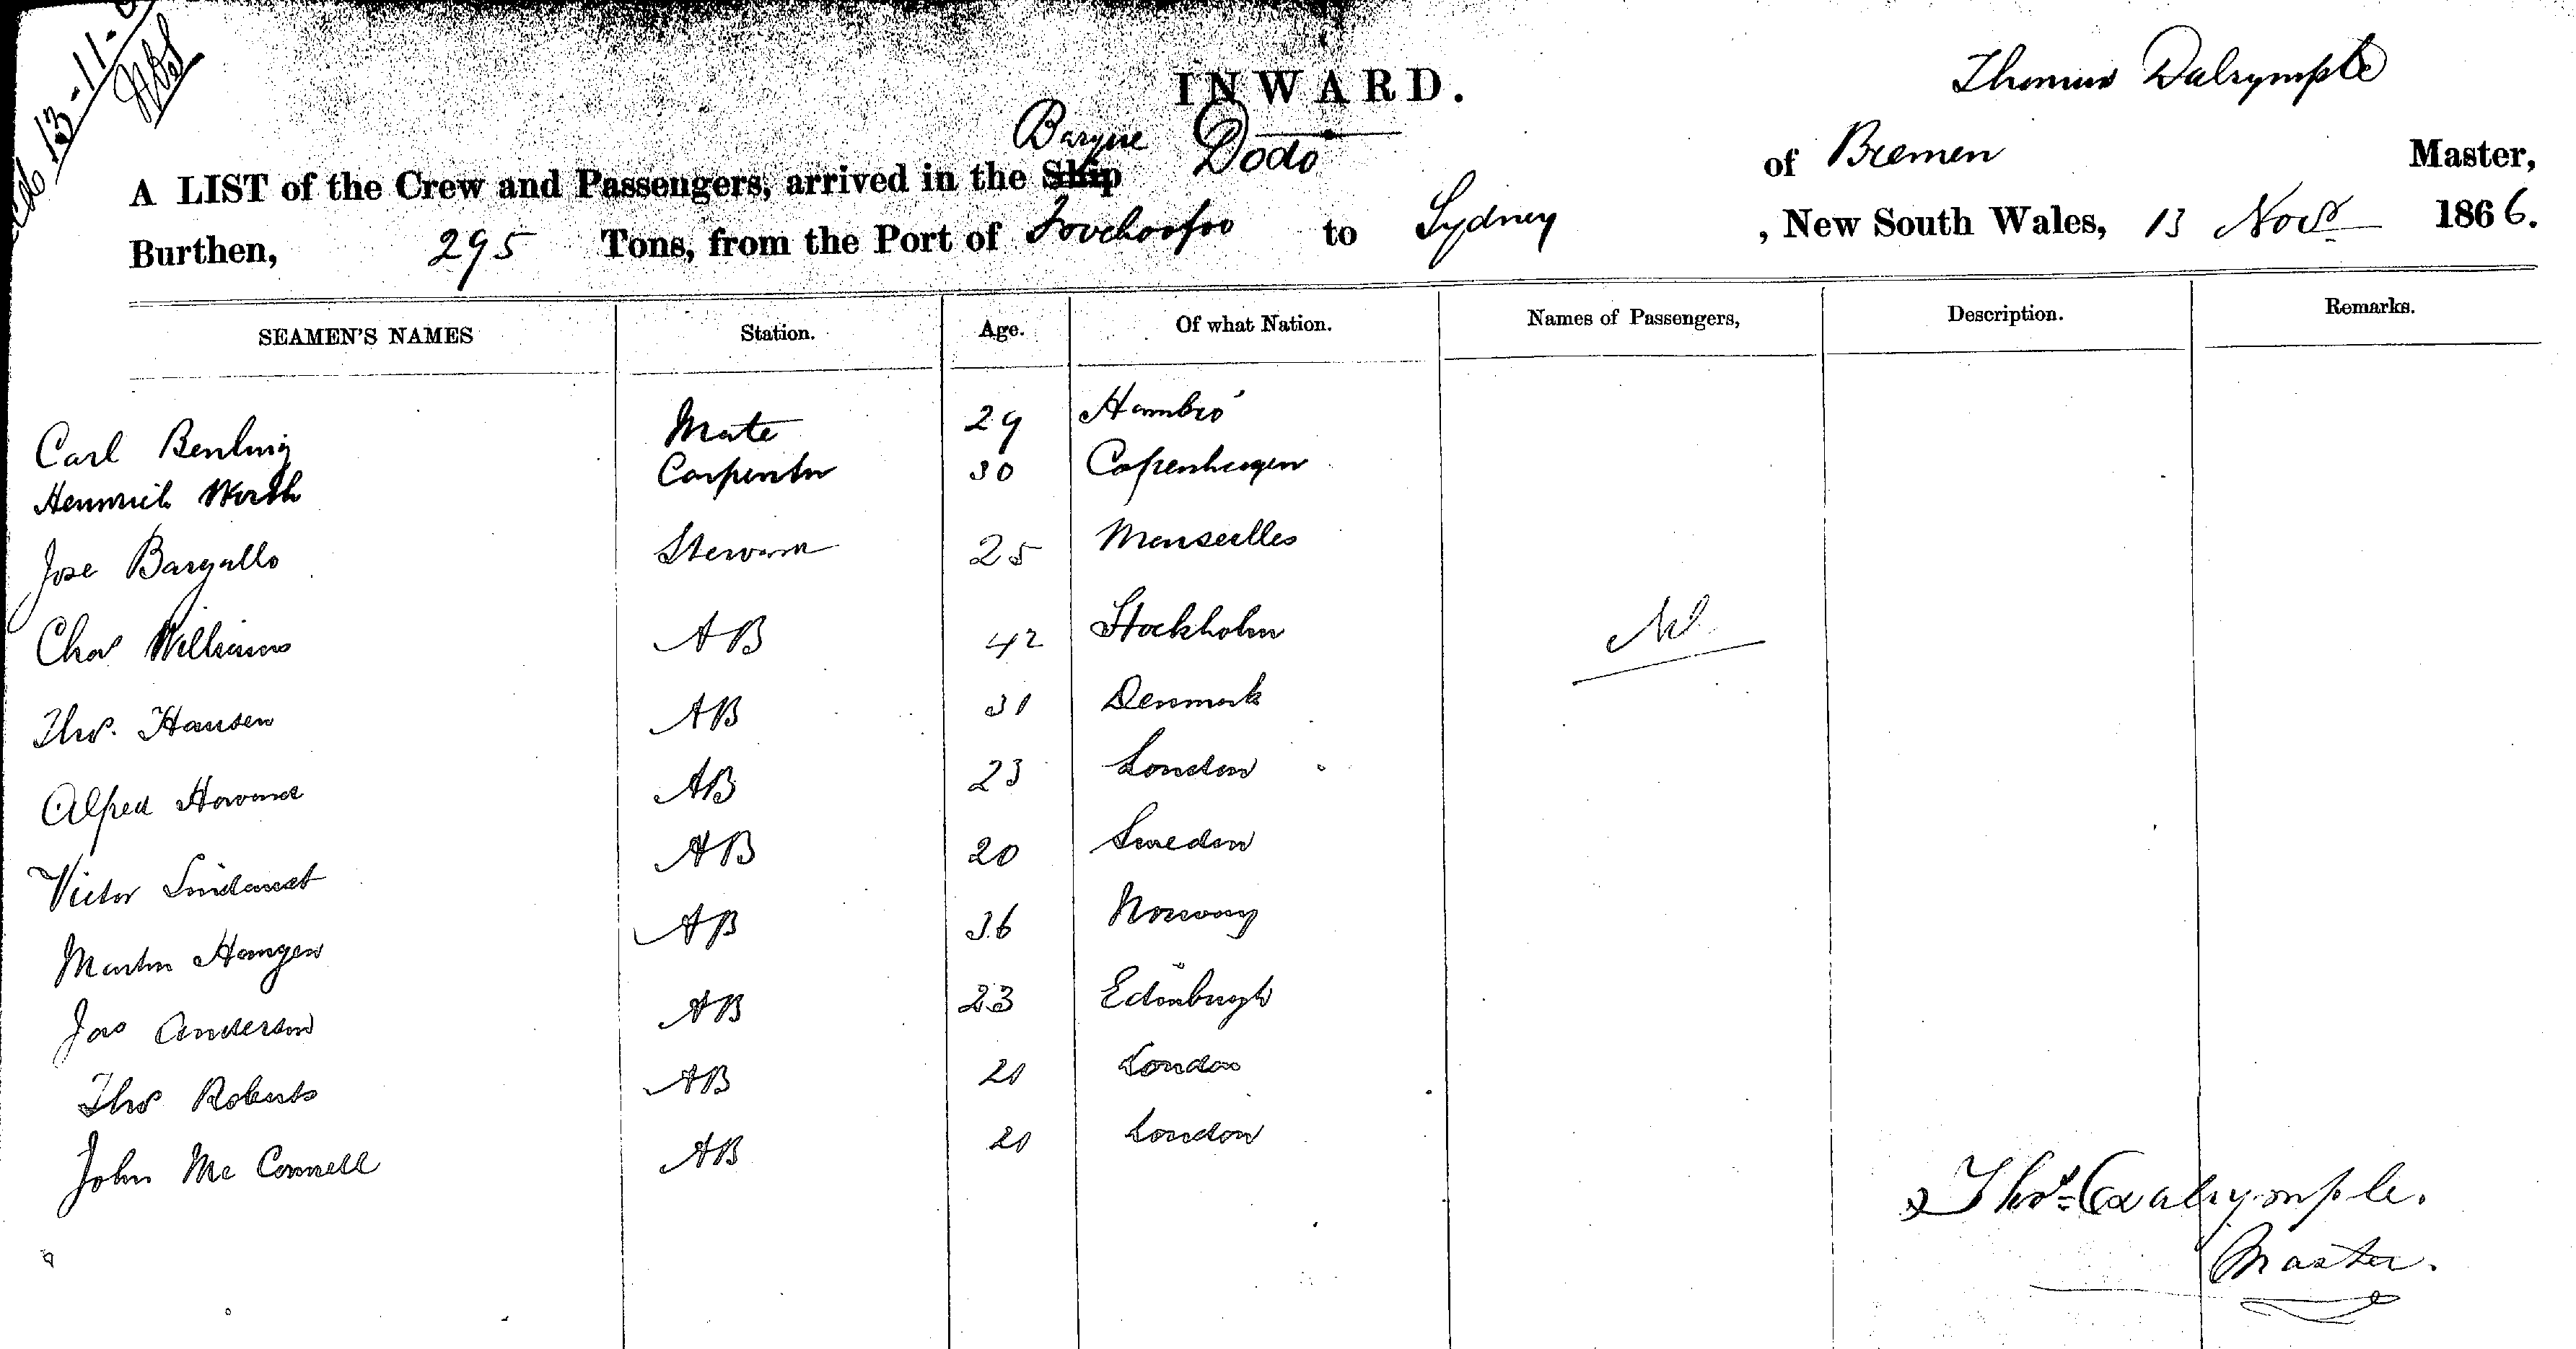 13-11-
INWARD.
Thomas Dalrymple
A LIST of the Crew and Passengers, arrived in the Ship Barque Dodo of Bremen Master,
Burthen, 295 Tons, from the Port of Foochoofoo to Sydney, New South Wales, 13 Novr 1866.
SEAMEN'S NAMES Station. Age. Of what Nation. Names of Passengers, Description. Remarks.
Carl Mate 29 Hambro'
Heinrich Worth Carpenter 30 Copenhagen
Jose Bargallo Steward 25 Marseilles
Chas Williams AB 42 Stockholm Nil
Thos. Hansen AB 31 Denmark
Alfred Howard AB 23 London
Victor AB 20 Sweden
Martin AB 36 Norway
Jas Anderson AB 23 Edinburgh
Thos Roberts AB 21 London
John McConnell AB 21 London
Thos. Dalrymple.
Master.